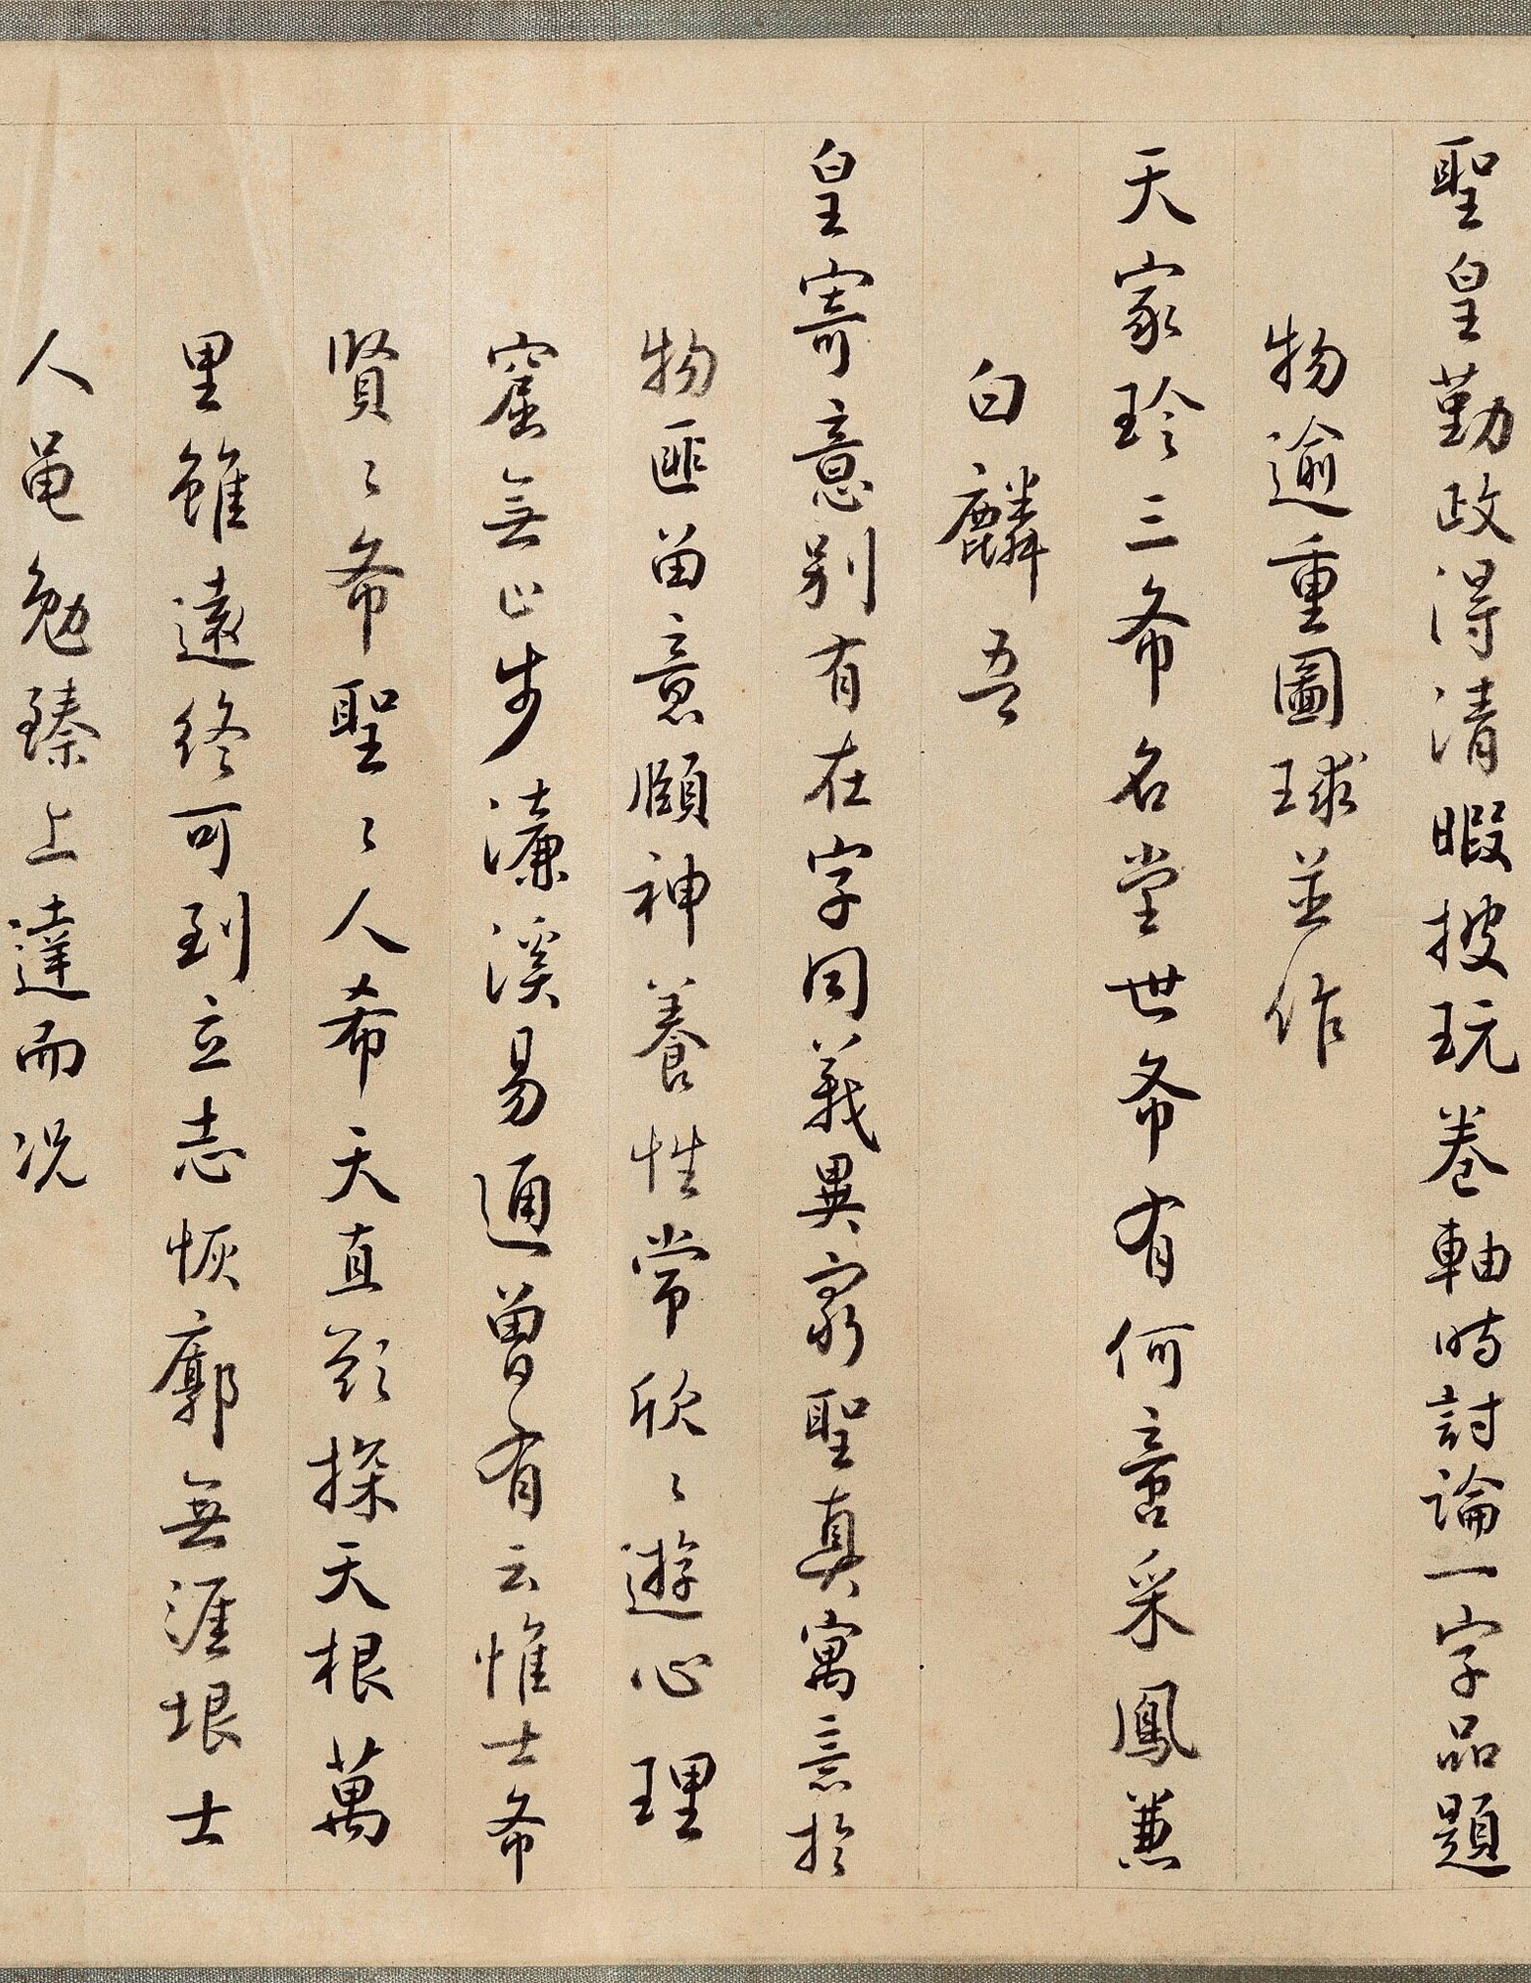 聖皇勤政得清暇披玩卷軸時討論一字品題
物逾重圖球並作
天家珍三希名堂世希有何啻采鳳兼
白麟吾
皇寄意別有在字同義異宗聖真寓意於
物匪留意頤神養性常欣〻遊心理
窟無止步濂溪易通曽有云惟士希
賢〻希聖〻人希天直欲探天根萬
里雖遠終可到立志恢廓無涯垠士
人黽勉臻上達而况